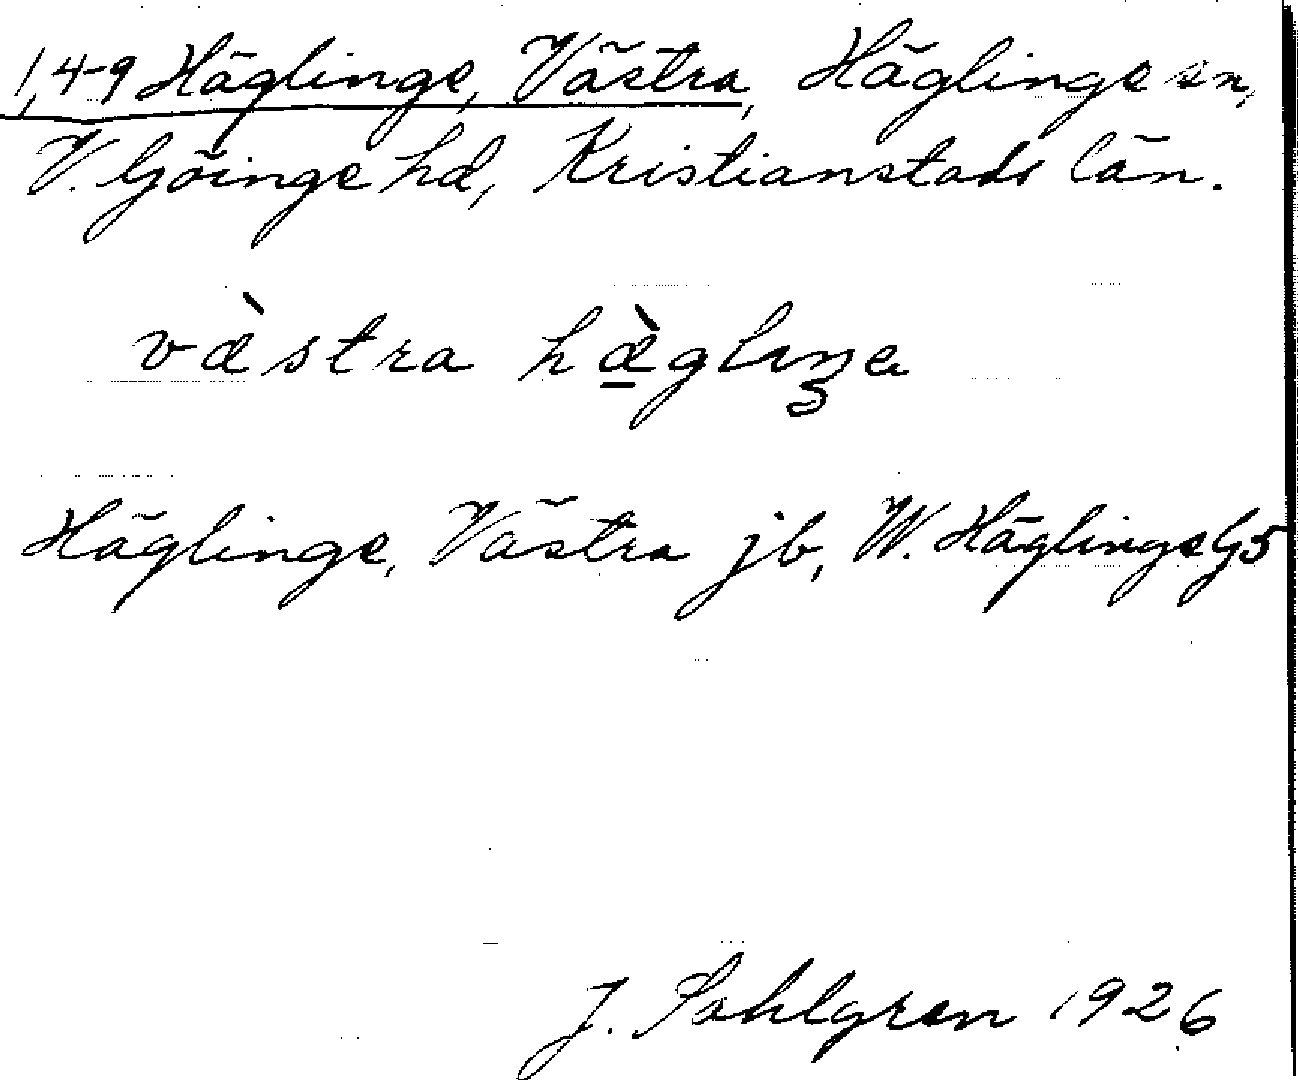 1,4-9 Häglinge, Västra, Häglinge sn,
V. Göinge hd, Kristianstads län.
væ̀stra hæ̱̀glıŋ̣e
Häglinge, Västra jb, W. Häglinge G5
J. Sahlgren 1926